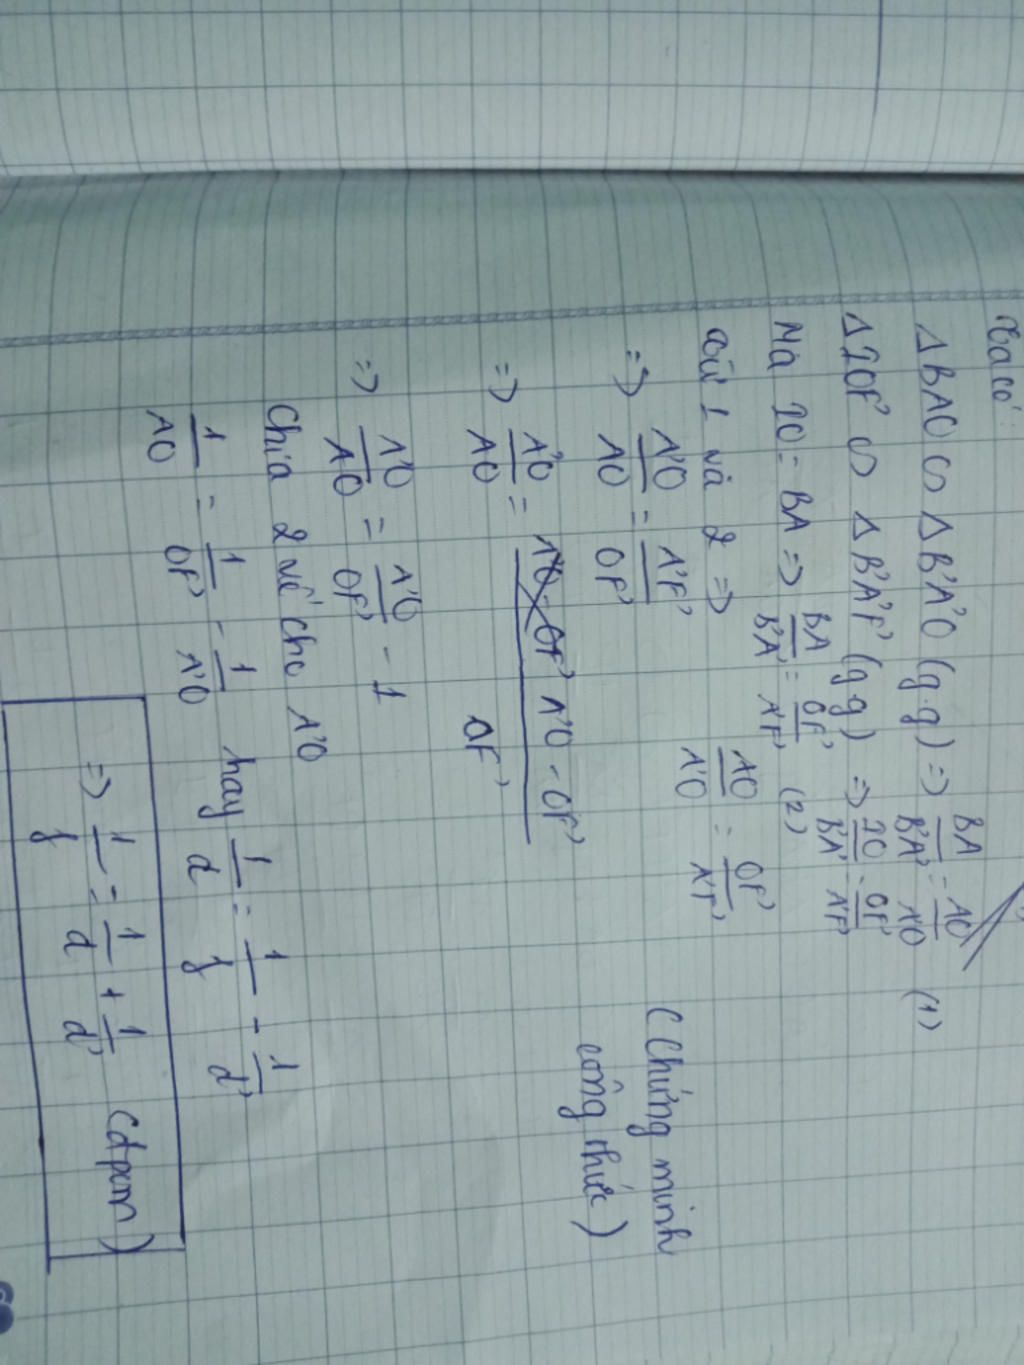 Ta có:
Δ BAO ∽ Δ B'A'O (g.g) => BA/B'A' = AO/A'O (1)
Δ IOF' ∽ Δ B'A'F' (g.g) => IO/B'A' = OF'/A'F'
Mà IO = BA => BA/B'A' = OF'/A'F' (2)
Từ 1 và 2 => AO/A'O = OF'/A'F'
(Chứng minh
công thức)
=> A'O/AO = A'F'/OF'
=> A'O/AO = A'O - OF'/OF'
=> A'O/AO = A'O/OF' - 1
Chia 2 vế cho A'O
1/AO = 1/OF' - 1/A'O hay 1/d = 1/f - 1/d'
=> 1/f = 1/d + 1/d' (đpcm)